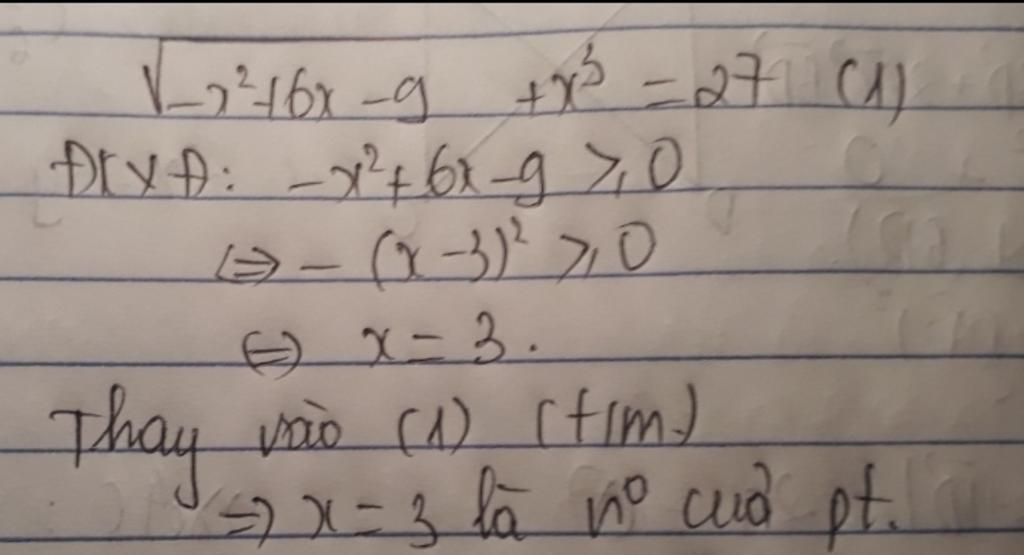 √-x²+6x-9 +x³ = 27 (1)
ĐKXĐ: -x²+6x-9 ≥ 0
⇔ - (x-3)² ≥ 0
⇔ x = 3.
Thay vào (1) (t/m)
⇒ x = 3 là nº của pt.